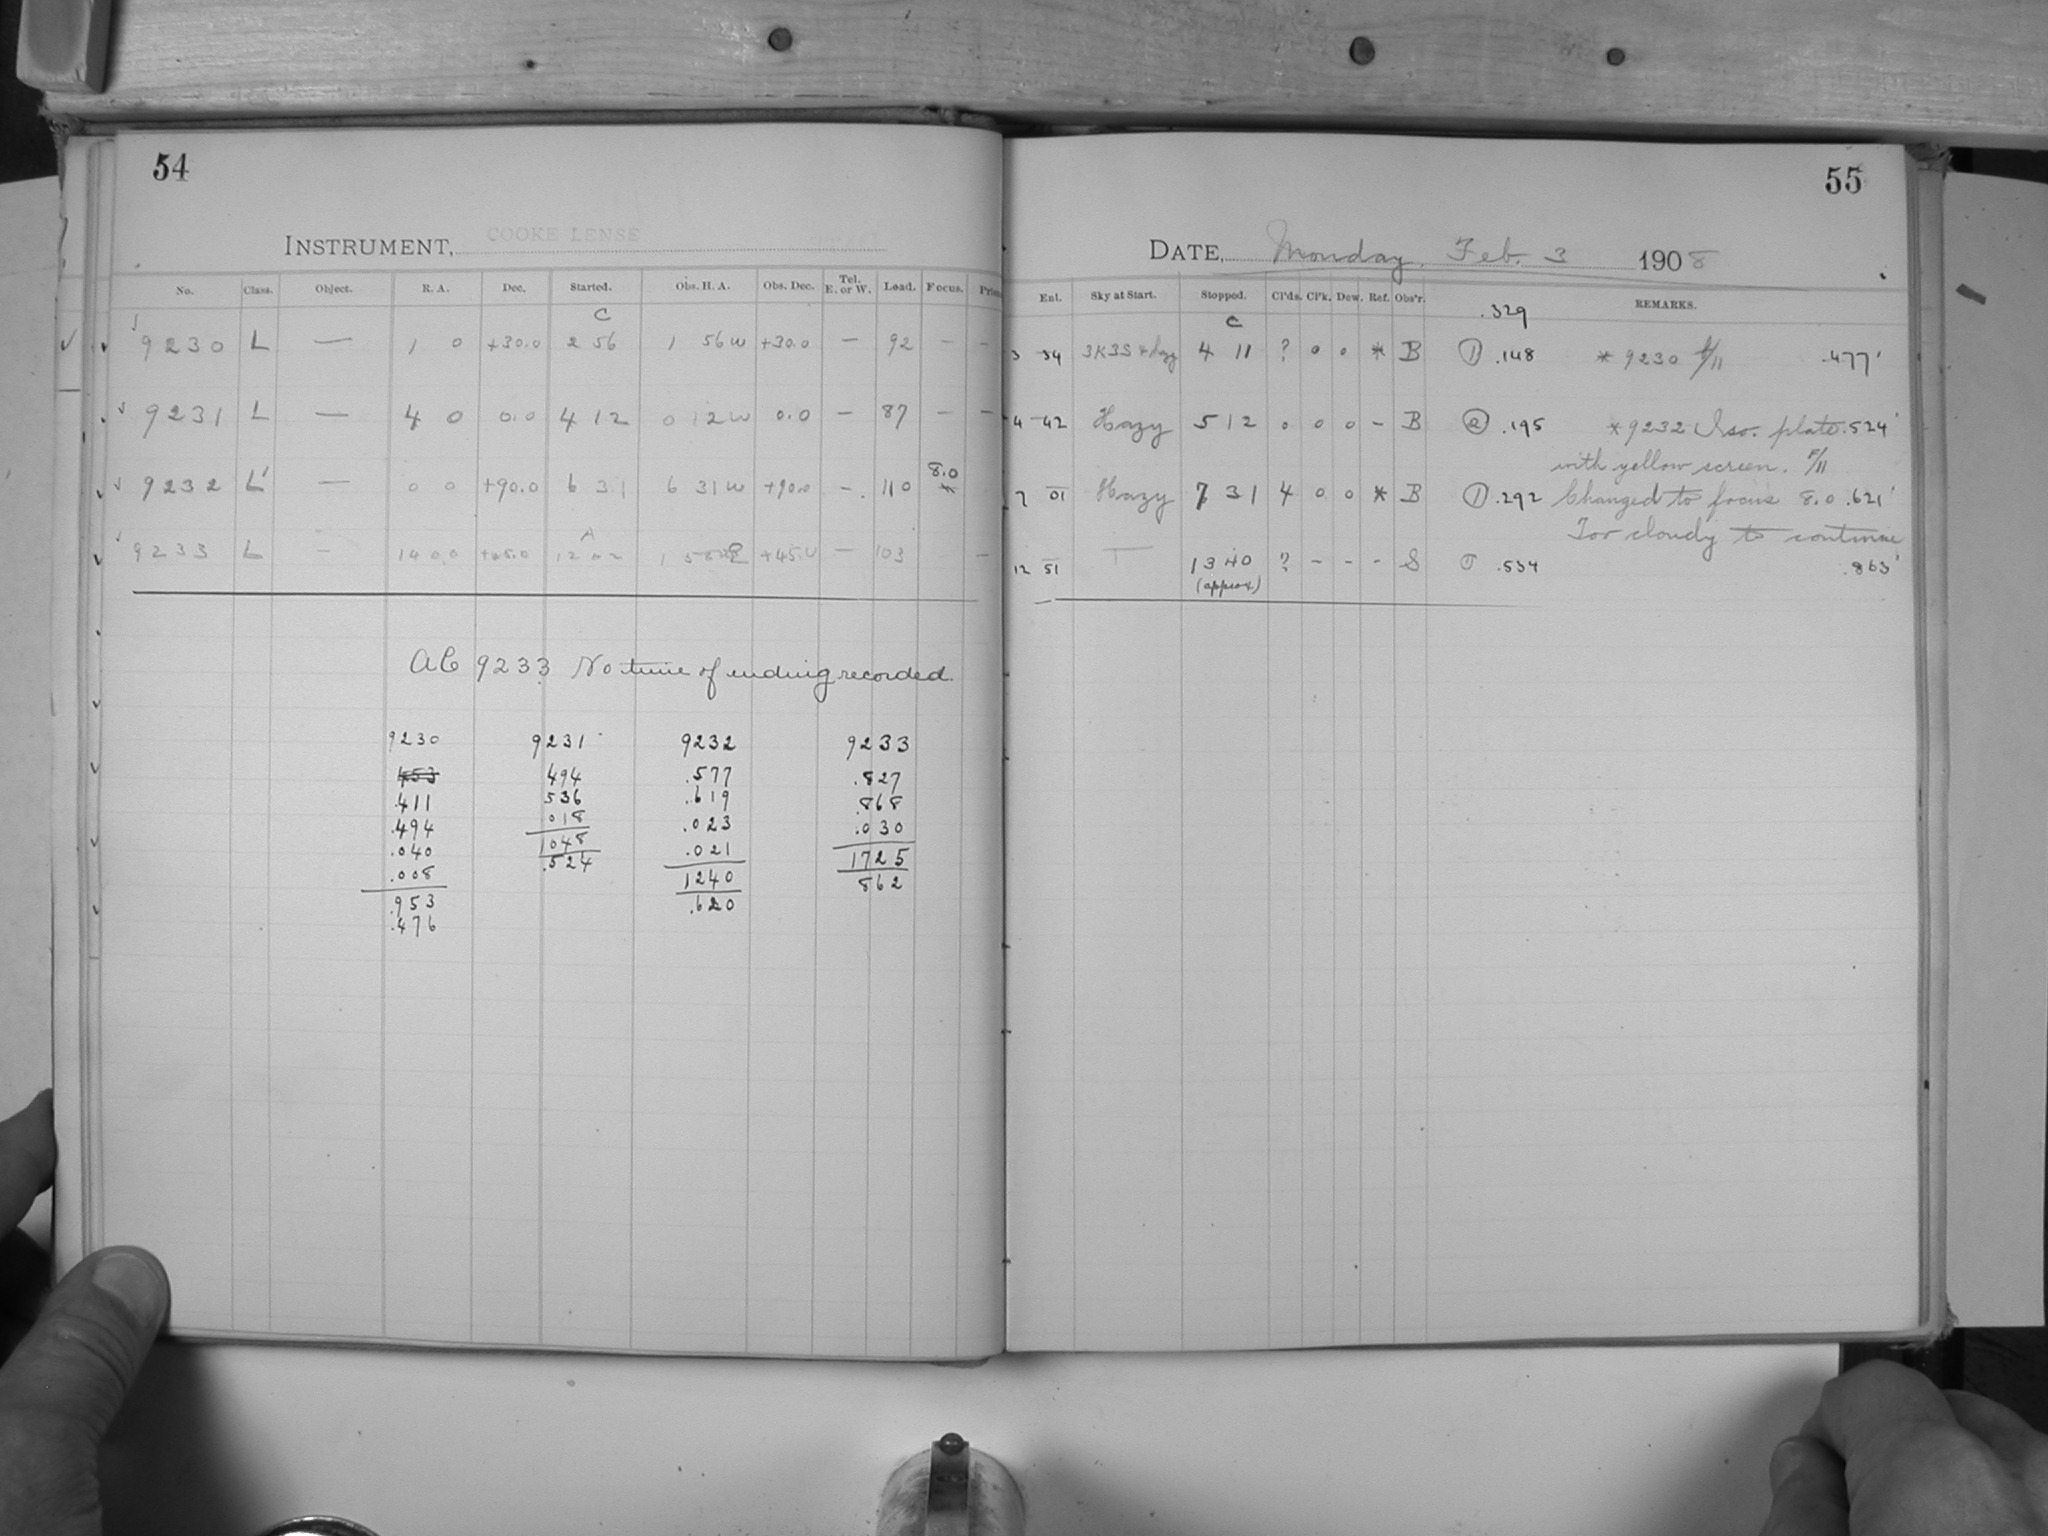 54
INSTRUMENT, COOKE LENSE
No. Class. Object. R. A. Dec. Started. Obs. H. A. Obs. Dec. Tel. E. or W. Load. Focus.
C
9230 L — 1 0 +30.0 2 56 1 56 W +30.0 — 92 — —
9231 L — 4 0 0.0 4 12 0 12 W 0.0 — 87 — —
8.0
9232 L' — 0 0 +90.0 6 31 6 31 W +90.0 — 110 *
A
9233 L — 14 0.0 +45.0 +45.0 — 103 —
AC 9233 No time of ending recorded
9230 9231 9232 9233
453 494 .577 .827
.411 536 .619 .868
.494 018 .023 .030
.040 1048 .021 1725
.008 .524 1240 862
.953 .620
.476
55
DATE, Monday, Feb. 3 1908
Ent. Sky at Start. Stopped. Cl'ds. Cl'k. Dew. Ref. Obs'r. REMARKS.
C .329
3 34 3K3S + hazy 4 11 ? 0 0 * B 1 .148 * 9230 f/11 .477'
4 42 Hazy 5 12 0 0 0 - B 2 .195 * 9232 Iso. plate .524'
with yellow screen. F/11
7 01 Hazy 7 31 4 0 0 * B 1 .292 Changed to focus 8.0 .621'
Too cloudy to continue
12 51 — 13 40 ? - - - S .534 .863'
(approx.)